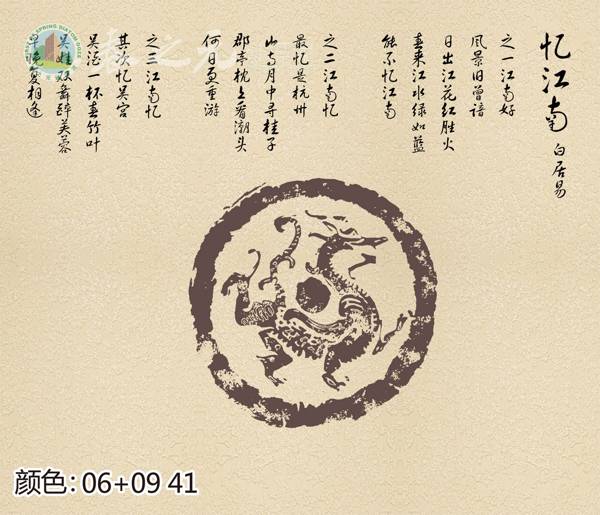 忆江南
白居易
之一江南好
风景旧曾谙
日出江花红胜火
春来江水绿如蓝
能不忆江南
之二江南忆
最忆是杭州
山寺月中寻桂子
郡亭枕上看潮头
何日更重游
之三江南忆
其次忆吴宫
吴酒一杯春竹叶
吴娃双舞醉芙蓉
早晚复相逢
颜色：06+09 41